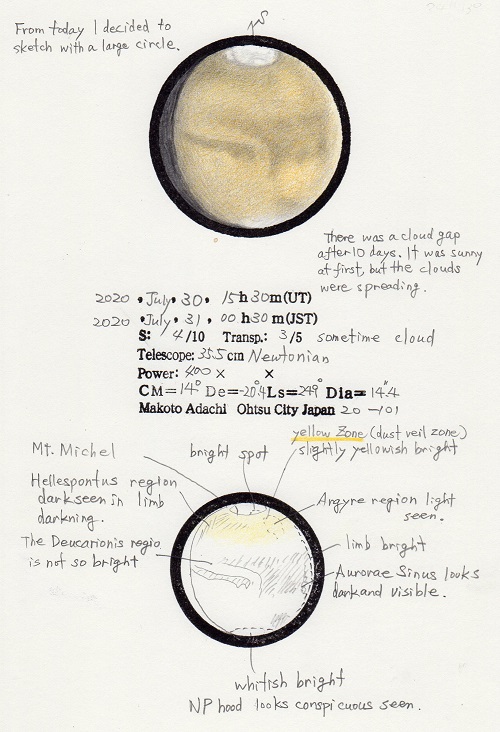 From today I decided to
sketch with a large circle.
S
There was a cloud gap
after 10 days. It was sunny
at first, but the clouds
were spreading.
2020 • July • 30 • 15h 30m (UT)
2020 • July • 31 • 00h 30m (JST)
S: 4/10 Transp.: 3/5 sometime cloud
Telescope: 35.5cm Newtonian
Power: 400 × ×
CM= 14° De= -20°.4 Ls= 249° Dia= 14".4
Makoto Adachi Ohtsu City Japan 20 -101
yellow Zone (dust veil zone)
slightly yellowish bright
Mt. Michel
bright spot
Hellespontus region
dark seen in limb
darkning.
Argyre region light
seen.
The Deucarionis regio
is not so bright
limb bright
Aurorae Sinus looks
dark and visible.
whitish bright
NP hood looks conspicuous seen.